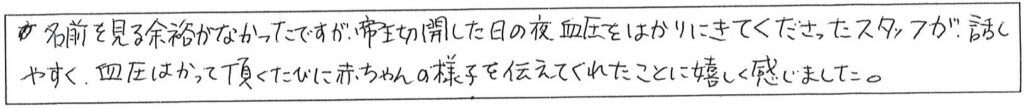 名前を見る余裕がなかったですが、帝王切開した日の夜、血圧をはかりにきてくださったスタッフが、話し
やすく、血圧はかって頂くたびに赤ちゃんの様子を伝えてくれたことに嬉しく感じました。